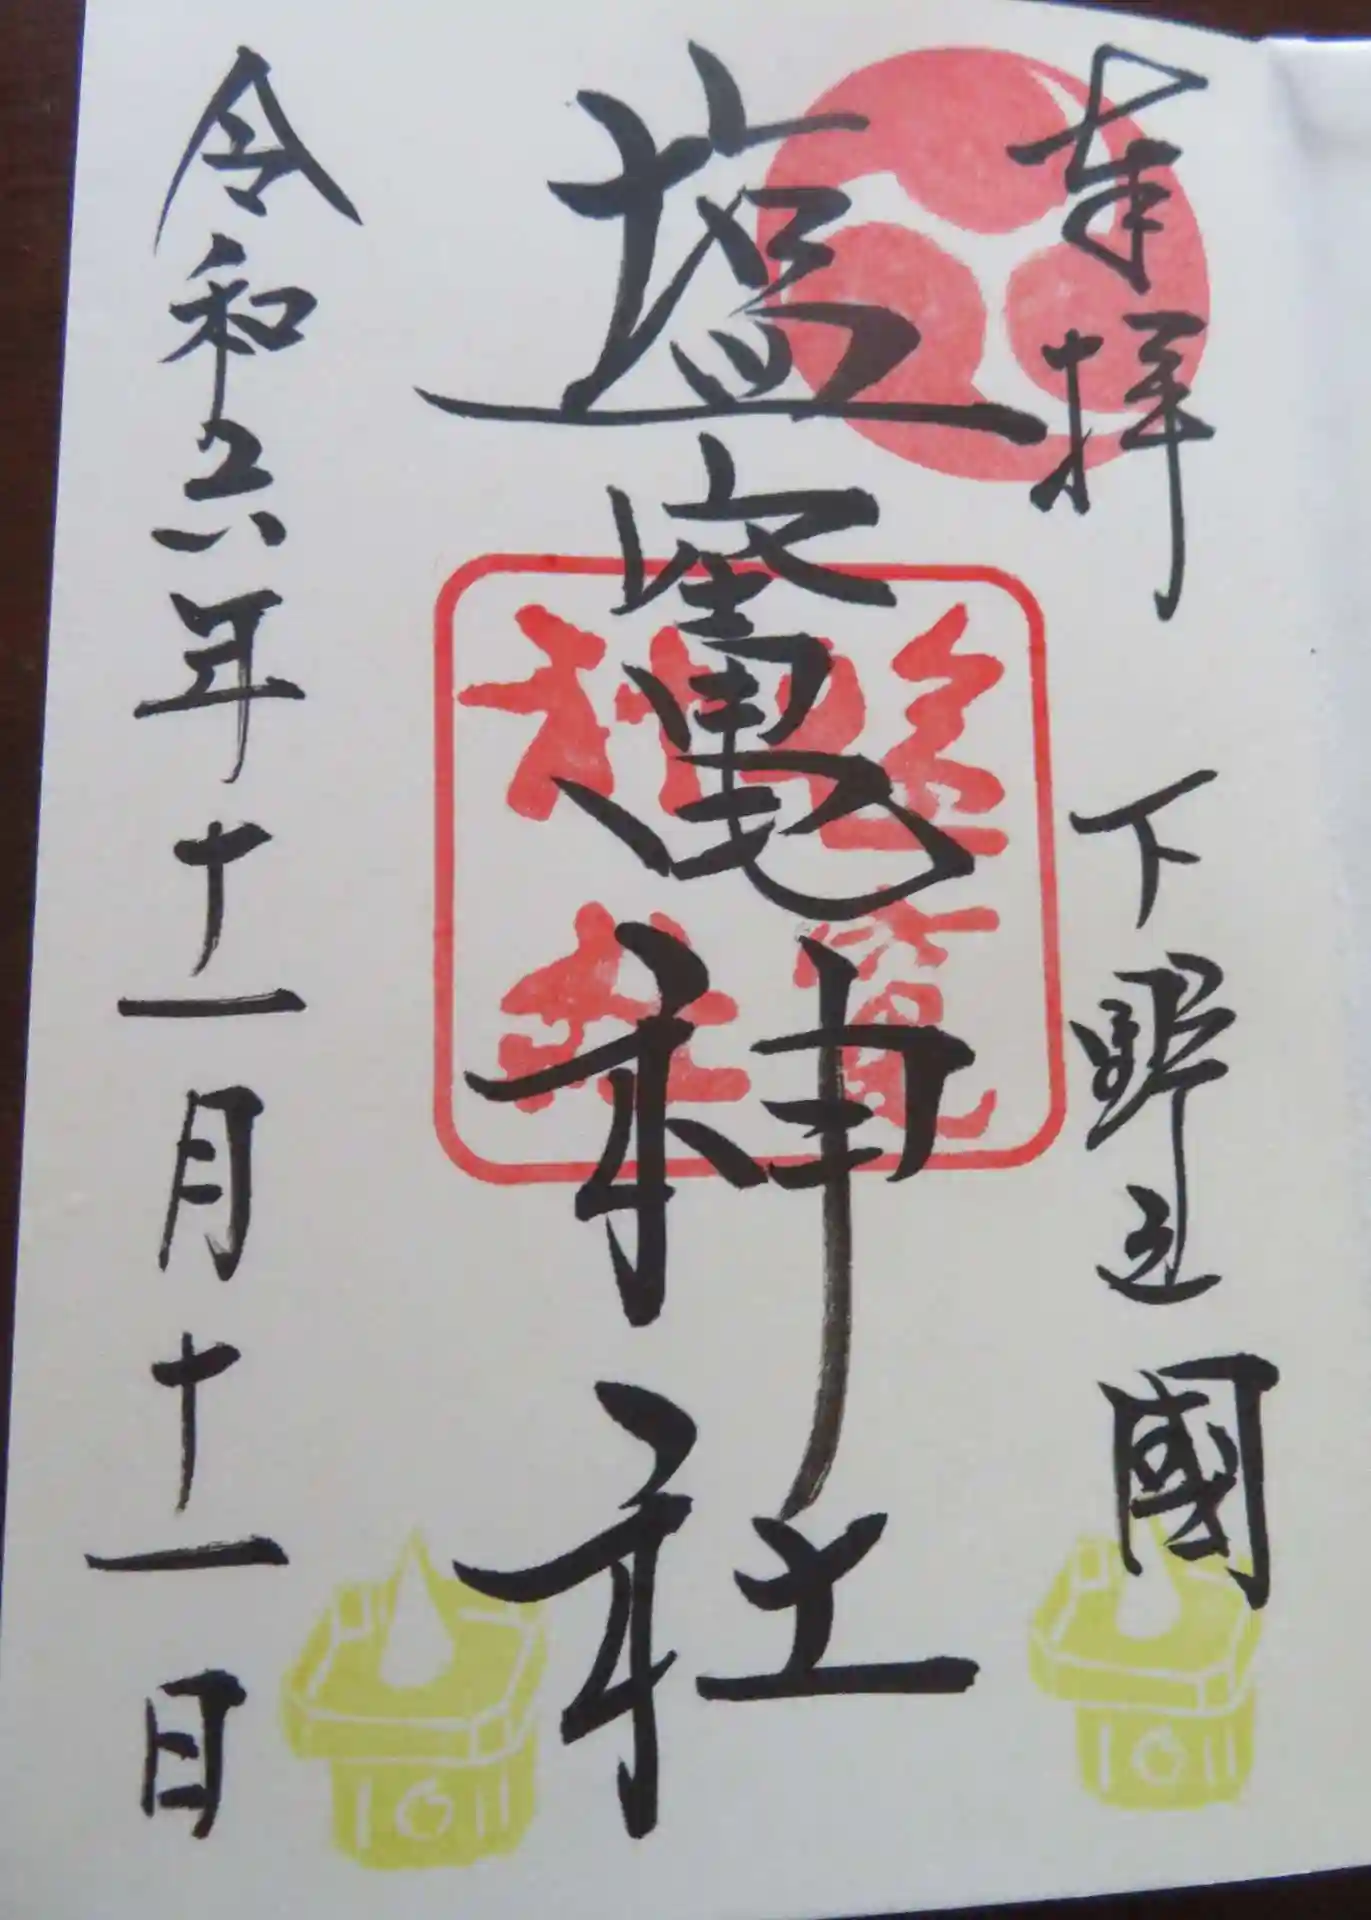 奉拝　下野之國
塩竃神社
塩竃
神社
令和六年十一月十一日